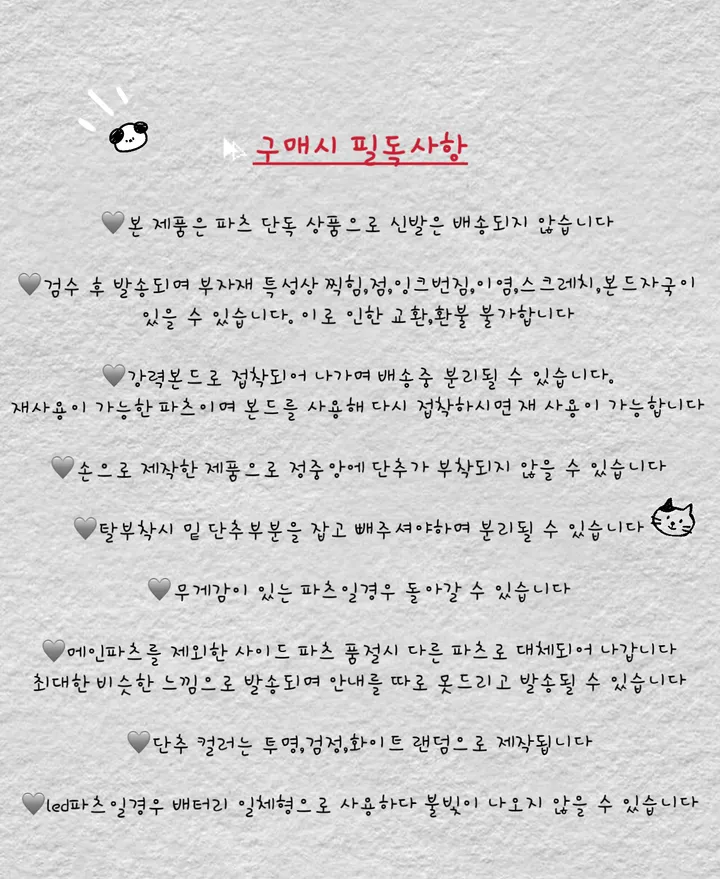 구매시 필독사항
🩶본 제품은 파츠 단독 상품으로 신발은 배송되지 않습니다
🩶검수 후 발송되며 부자재 특성상 찍힘,점,잉크번짐,이염,스크레치,본드자국이
있을 수 있습니다. 이로 인한 교환,환불 불가합니다
🩶강력본드로 접착되어 나가며 배송중 분리될 수 있습니다.
재사용이 가능한 파츠이며 본드를 사용해 다시 접착하시면 재 사용이 가능합니다
🩶손으로 제작한 제품으로 정중앙에 단추가 부착되지 않을 수 있습니다
🩶탈부착시 밑 단추부분을 잡고 빼주셔야하며 분리될 수 있습니다
🩶무게감이 있는 파츠일경우 돌아갈 수 있습니다
🩶메인파츠를 제외한 사이드 파츠 품절시 다른 파츠로 대체되어 나갑니다
최대한 비슷한 느낌으로 발송되며 안내를 따로 못드리고 발송될 수 있습니다
🩶단추 컬러는 투명,검정,화이트 랜덤으로 제작됩니다
🩶led파츠일경우 배터리 일체형으로 사용하다 불빛이 나오지 않을 수 있습니다